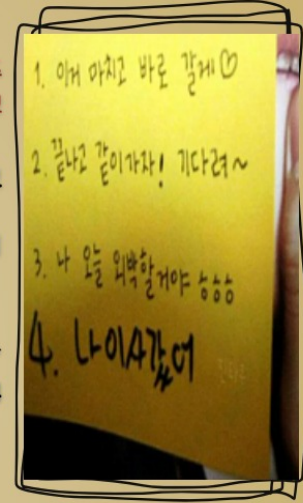 1. 이거 마치고 바로 갈게♡
2. 끝나고 같이가자! 기다려~
3. 나 오늘 외박할거야 ㅎㅎㅎ
4. 나이사갔어